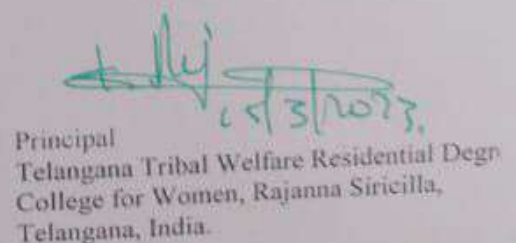 15/3/2023.
Principal
Telangana Tribal Welfare Residential Degr
College for Women, Rajanna Siricilla,
Telangana, India.